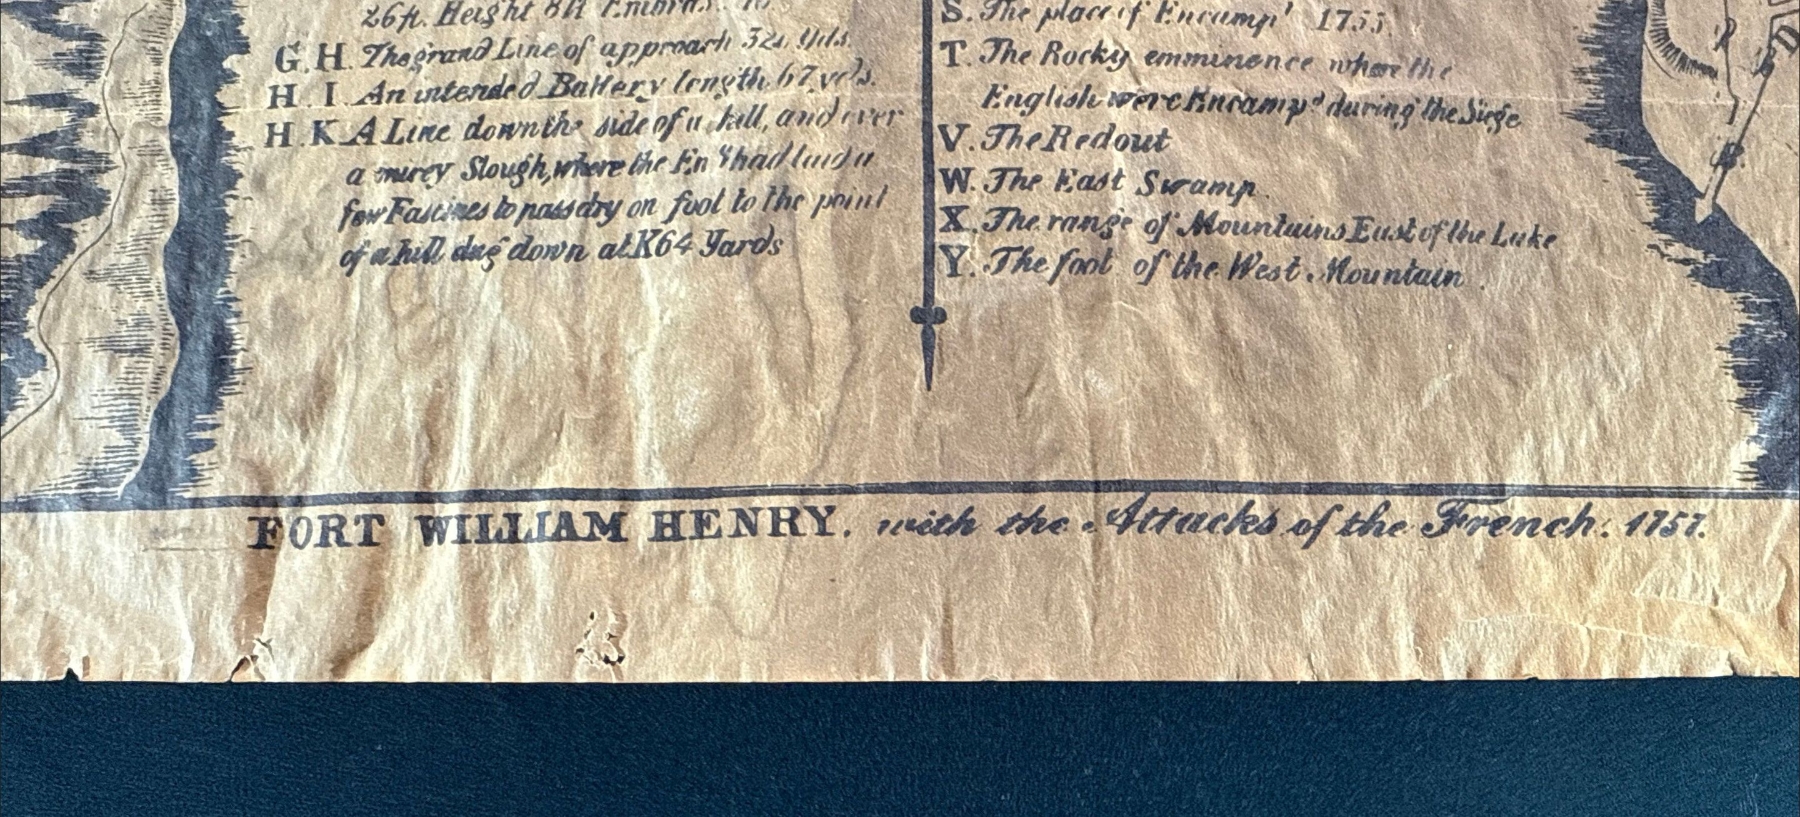 26ft. Height 8ft
G. H. The grand Line of approach 32 Yds.
H. I. An intended Battery length 67 yds.
H. K. A Line down the side of a hill, and over
a mirey Slough, where the En^y had laid a
few Fascines to pass dry on foot to the point
of a hill dug down at K 64 Yards
S. The place of Encamp^t 1755.
T. The Rocky emminence where the
English were Encamp^d during the Siege
V. The Redout
W. The East Swamp.
X. The range of Mountains East of the Lake
Y. The foot of the West Mountain.
FORT WILLIAM HENRY. with the Attacks of the French. 1757.